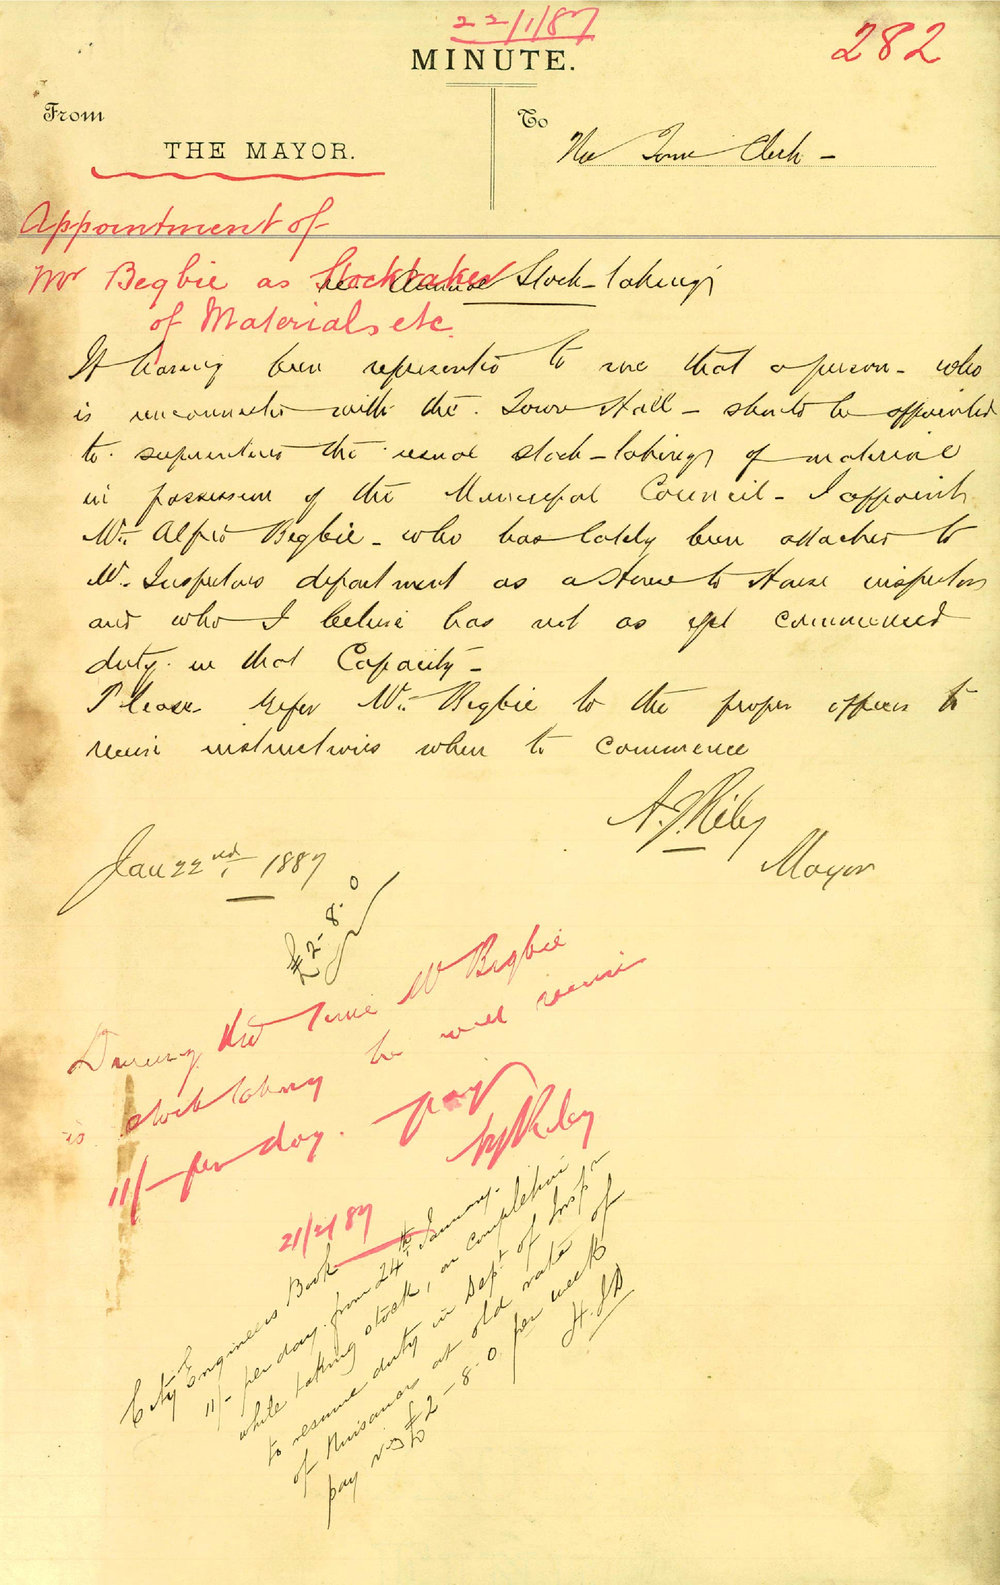 22/1/87
282
MINUTE.
From
To
THE MAYOR.
The Town Clerk –
Appointment of
Mr Begbie as Stocktaker
of Materials etc.
re Annual Stock-taking
It having been represented to me that a person – who
is unconnected with the Town Hall – should be appointed
to superintend the usual stock-taking of material
in possession of the Municipal Council – I appoint
Mr. Alfred Begbie – who has lately been attached to
Mr. Inspectors department as a House to House inspector
and who I believe has not as yet commenced
duty in that Capacity –
Please refer Mr. Begbie to the proper officer to
receive instructions when to commence
A.J. Riley
Mayor
Jan 22nd, 1887
£2-8.0
During the time Mr Begbie
is stocktaking he will receive
11/- per day. pay
AJRiley
21/2/87
City Engineers Book
11/- per day from 24th January.
while taking stock, on completion
to resume duty in Dept of Inspr
of Nuisances at old rate of
pay viz £2-8.0 per week